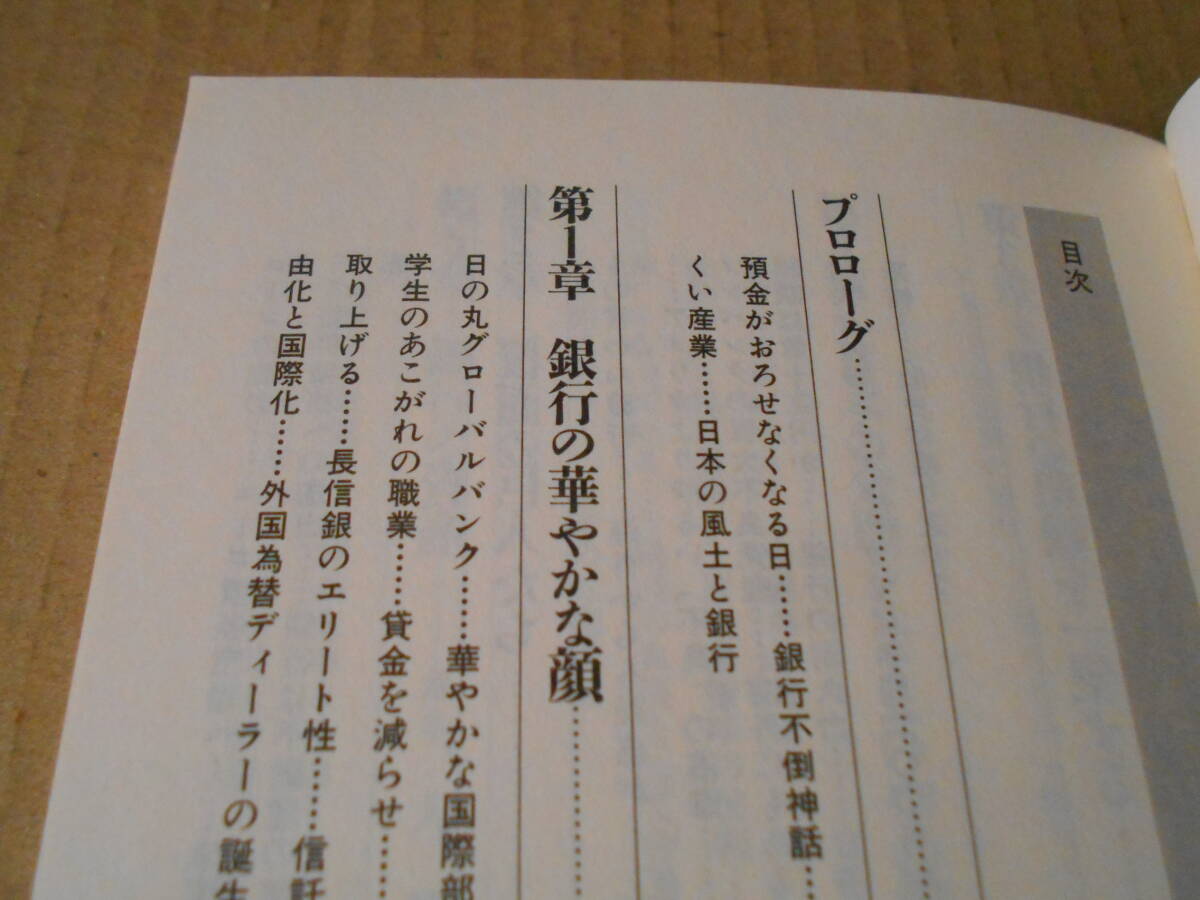 目次
プロローグ……………
預金がおろせなくなる日……銀行不倒神話…
くい産業……日本の風土と銀行
第1章 銀行の華やかな顔……………
日の丸グローバルバンク……華やかな国際部
学生のあこがれの職業……貸金を減らせ……
取り上げる……長信銀のエリート性……信託
由化と国際化……外国為替ディーラーの誕生